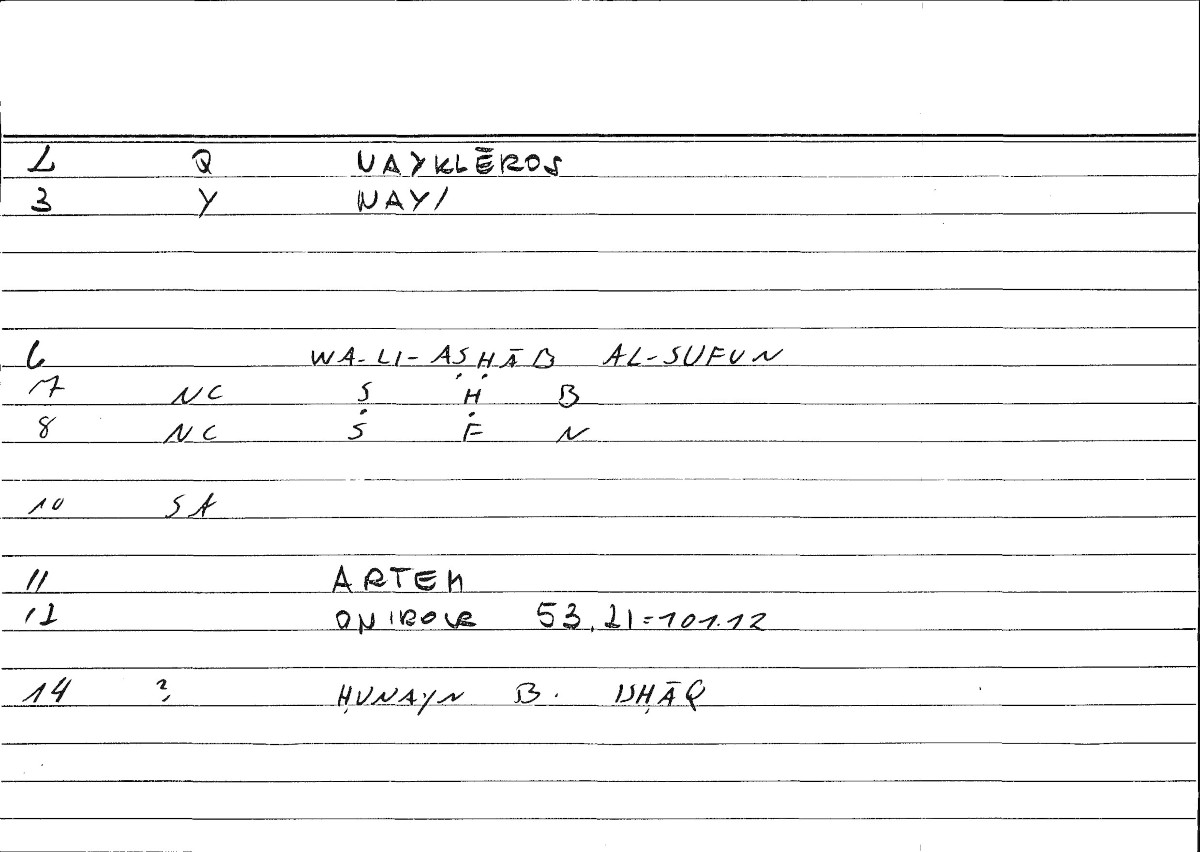 2 Q NAYKLĒROS
3 Y NAY/
6 WA-LI-AṢḤĀB AL-SUFUN
7 NC Ṣ Ḥ B
8 NC S F N
10 SA
11 ARTEM
12 ONIROCR 53.21=101.12
14 ? ḤUNAYN B. ISḤĀQ